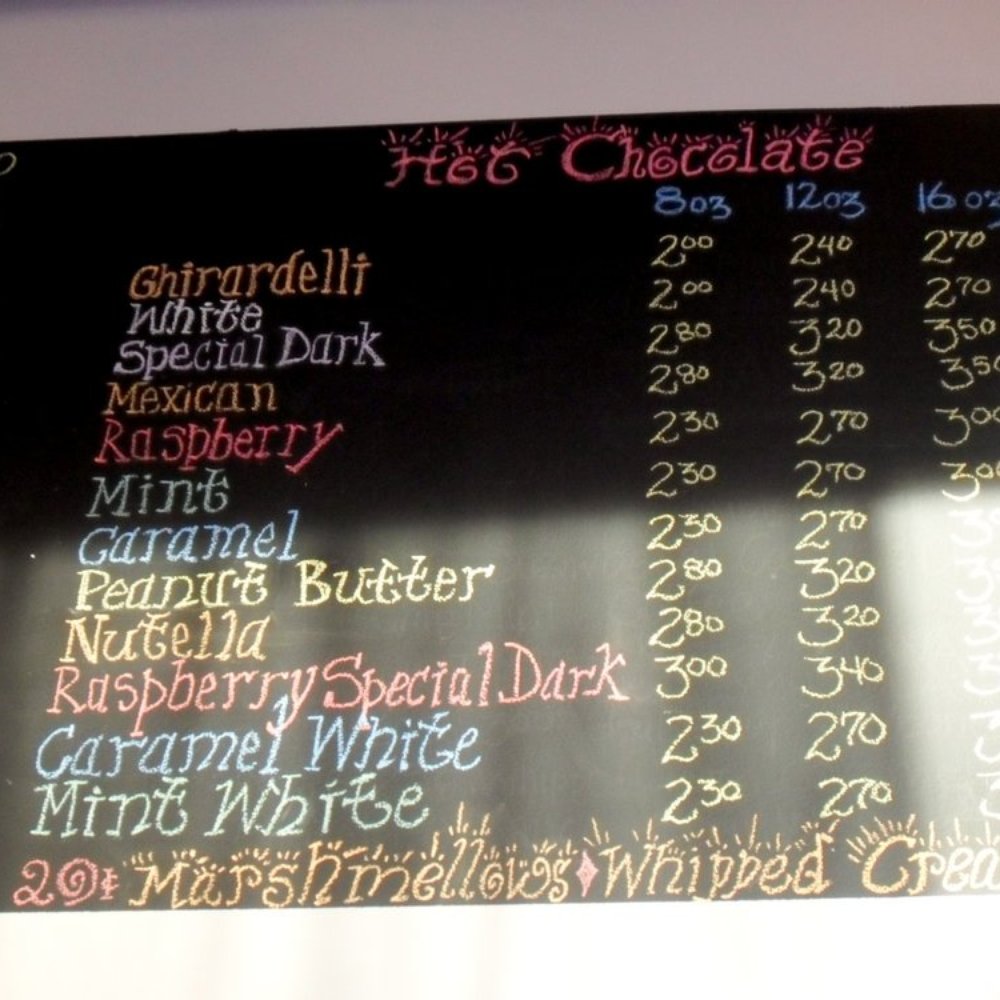 Hot Chocolate
8oz 12oz 16 oz
Ghirardelli 200 240 270
White 200 240 270
Special Dark 280 320 350
Mexican 280 320 350
Raspberry 230 270 300
Mint 230 270 300
Caramel 230 270
Peanut Butter 280 320
Nutella 280 320
Raspberry Special Dark 300 340
Caramel White 230 270
Mint White 230 270
20¢ Marshmellows ♦ Whipped Crea